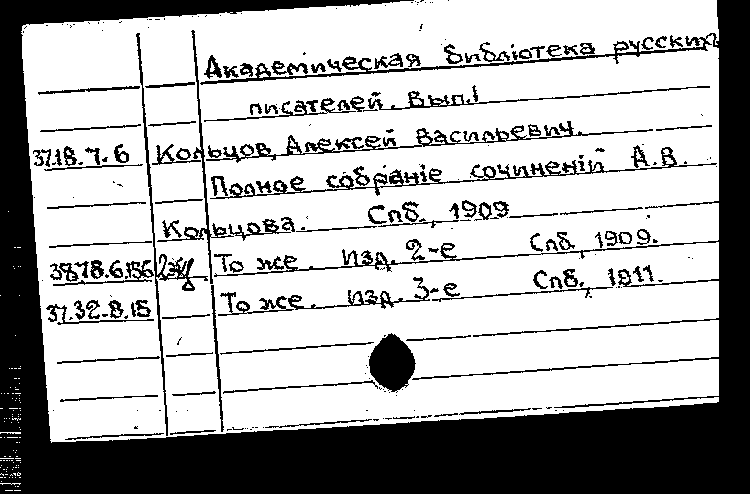 Академическая библіотека русских
писателей. Вып.1
37.18.7.6 Кольцов, Алексей Васильевич.
Полное собраніе сочиненій А.В.
Кольцова. Спб., 1909
3878.6.156 2экз. То же. Изд. 2-е Спб., 1909.
37.32.8.15 То же. Изд. 3-е Спб., 1911.